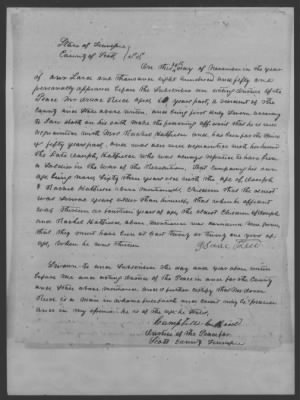 State of Tennessee
County of Scott
On this day of November in the year
of our Lord one thousand eight hundred and fifty one
personally appeared before the Subscriber an acting Justice of the
Peace Mr Isaac Reece aged years past, a resident of the
County and State above written, who being first duly Sworn according
to Law doth on his oath make the following affidavit that he is well
acquainted with Mrs Rachel Hatfield and has been for the term
of fifty years past, and was also well acquainted with her husband
the late Joseph Hatfield who was always reputed to have been
a Soldier in the war of the Revolution. That comparing his own
age being sixty three years old with the age of Joseph
& Rachel Hatfield above mentioned Children that the oldest
was several years older than himself, that when he affiant
was thirteen or fourteen years of age, the oldest Children of Joseph
and Rachel Hatfield above mentioned was
that they must have been at least twenty or twenty one years of
age, when he was thirteen
Isaac Reece
Sworn to and Subscribed the day and year above written
before me an acting Justice of the Peace in and for the County
and State above mentioned and I further certify that Mr Isaac
Reece is a man in whose statements any court may place confidence
and in my opinion he is of the age he states,
Justice of the Peace for
Scott County Tennessee